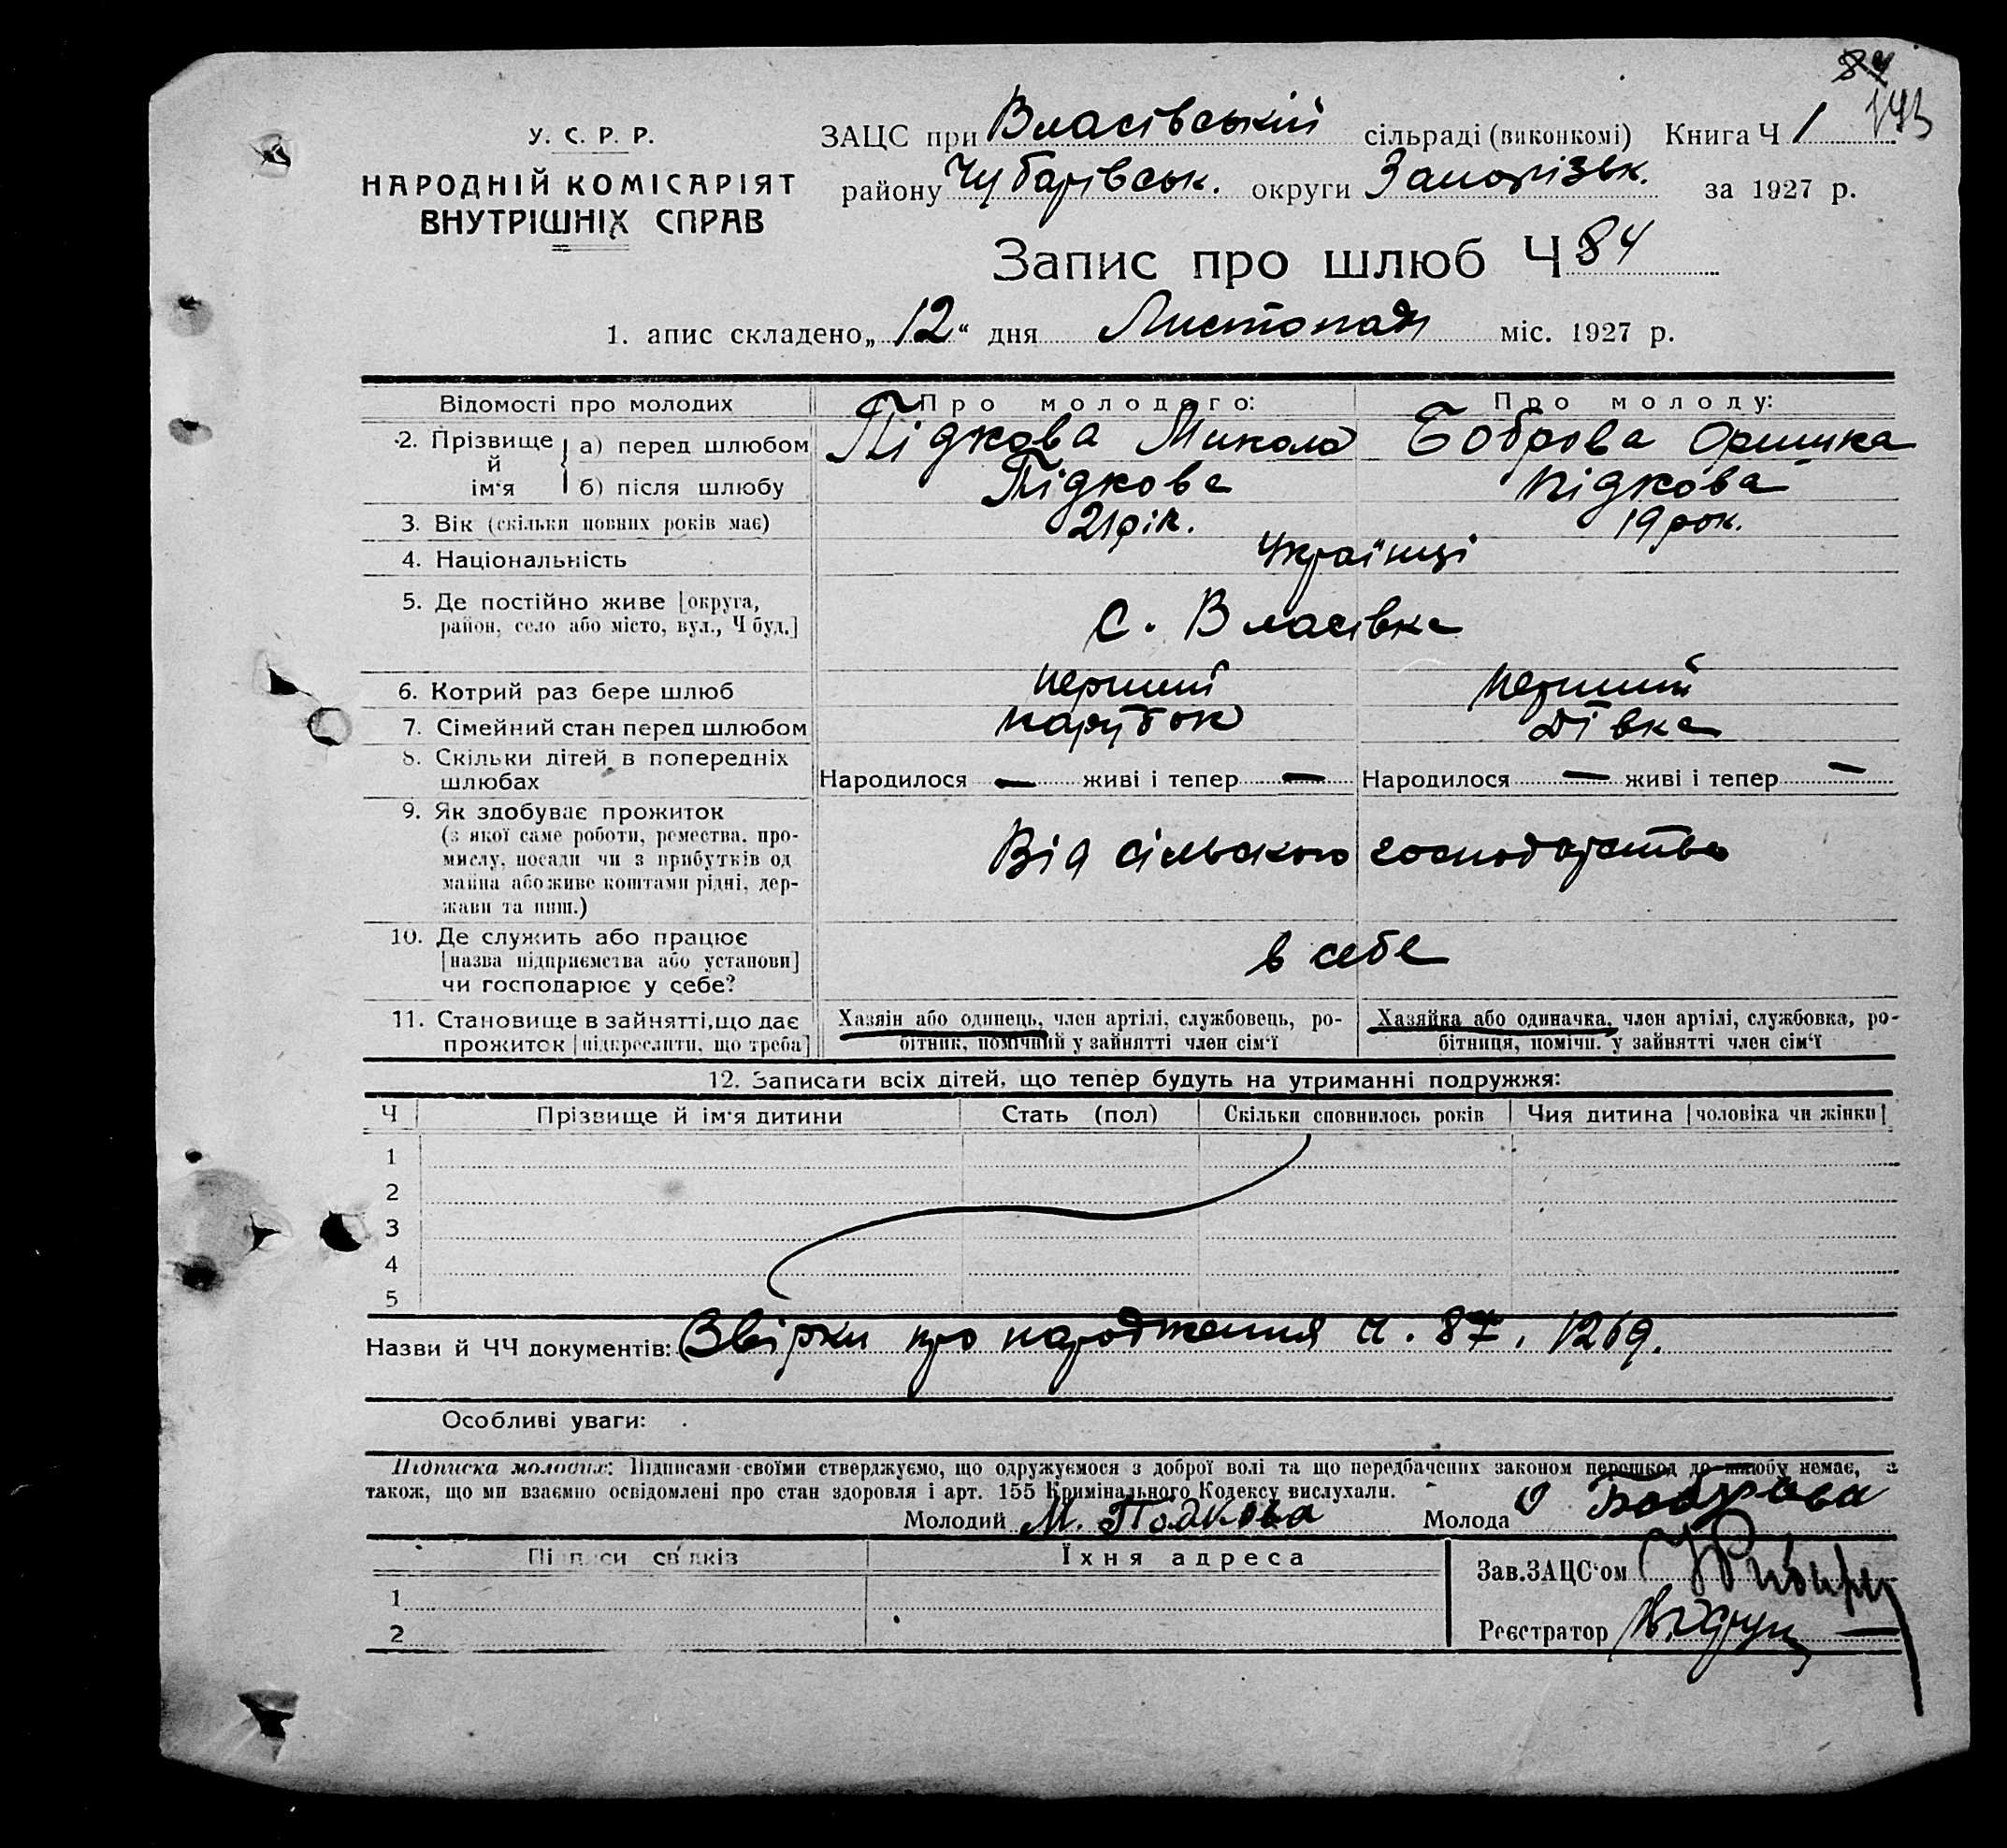 84
143
У. С. Р. Р.
НАРОДНІЙ КОМІСАРІЯТ
ВНУТРІШНІХ СПРАВ
ЗАЦС при Власівській сільраді (виконкомі) Книга Ч 1
району Чубарівськ. округи Запорізьк. за 1927 р.
Запис про шлюб Ч 84
1. апис складено „12“ дня Листопада міс. 1927 р.
Відомості про молодих Про молодого: Про молоду:
2. Прізвище й ім‘я а) перед шлюбом Підкова Микола Боброва Оришка
б) після шлюбу Підкова Підкова
3. Вік (скільки повних років має) 21 рік. 19 рок.
4. Національність Українці
5. Де постійно живе [округа,
район, село або місто, вул., Ч буд.] с. Власівка
6. Котрий раз бере шлюб перший перший
7. Сімейний стан перед шлюбом парубок дівка
8. Скільки дітей в попередніх
шлюбах Народилося — живі і тепер — Народилося — живі і тепер —
9. Як здобуває прожиток
(з якої саме роботи, ремества, про-
мислу, посади чи з прибутків од
майна або живе коштами рідні, дер-
жави та инш.) Від сільского господарства
10. Де служить або працює
[назва підприємства або установи]
чи господарює у себе? в себе
11. Становище в зайнятті, що дає
прожиток [підкреслити, що треба]
Хазяін або одинець, член артілі, службовець, ро-
бітник, помічний у зайнятті член сім‘ї
Хазяйка або одиначка, член артілі, службовка, ро-
бітниця, помічн. у зайнятті член сім‘ї
12. Записати всіх дітей, що тепер будуть на утриманні подружжя:
Ч Прізвище й ім‘я дитини Стать (пол) Скільки сповнилось років Чия дитина [чоловіка чи жінки]
1
2
3
4
5
Назви й ЧЧ документів: Звірки про народження ч. 87, 1269.
Особливі уваги:
Підписка молодих: Підписами своїми стверджуємо, що одружуємося з доброї волі та що передбачених законом перешкод до шлюбу немає, а
також, що ми взаємно освідомлені про стан здоровля і арт. 155 Кримінального Кодексу вислухали.
Молодий М. Подкова Молода О Боброва
Підписи св‘дків Їхня адреса
1
2
Зав.ЗАЦС‘ом
Реєстратор